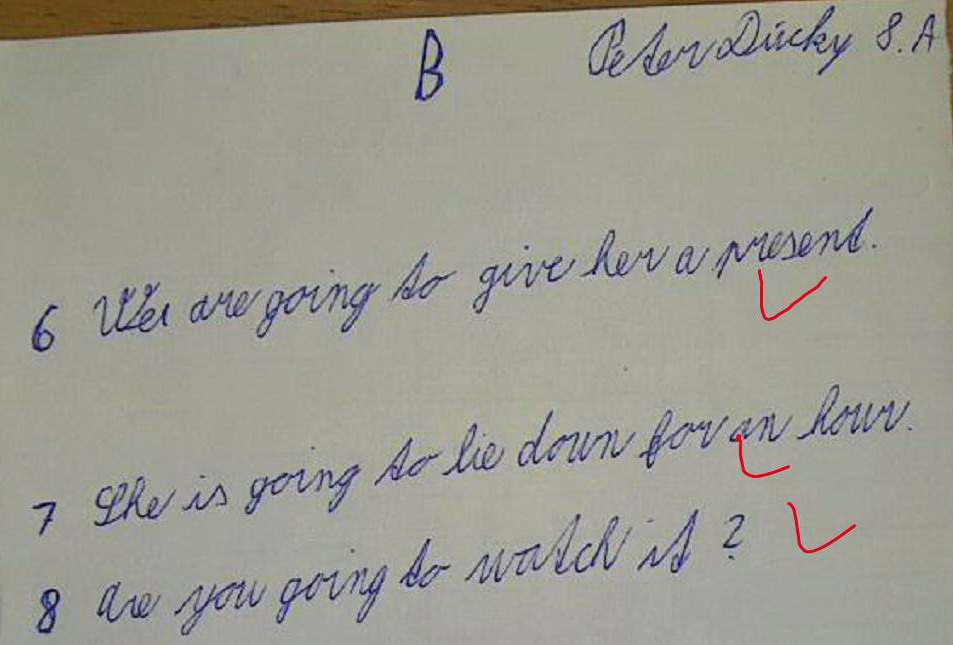 B
Peter Dúcky 8.A
6 We are going to give her a present.
7 She is going to lie down for an hour.
8 Are you going to watch it?